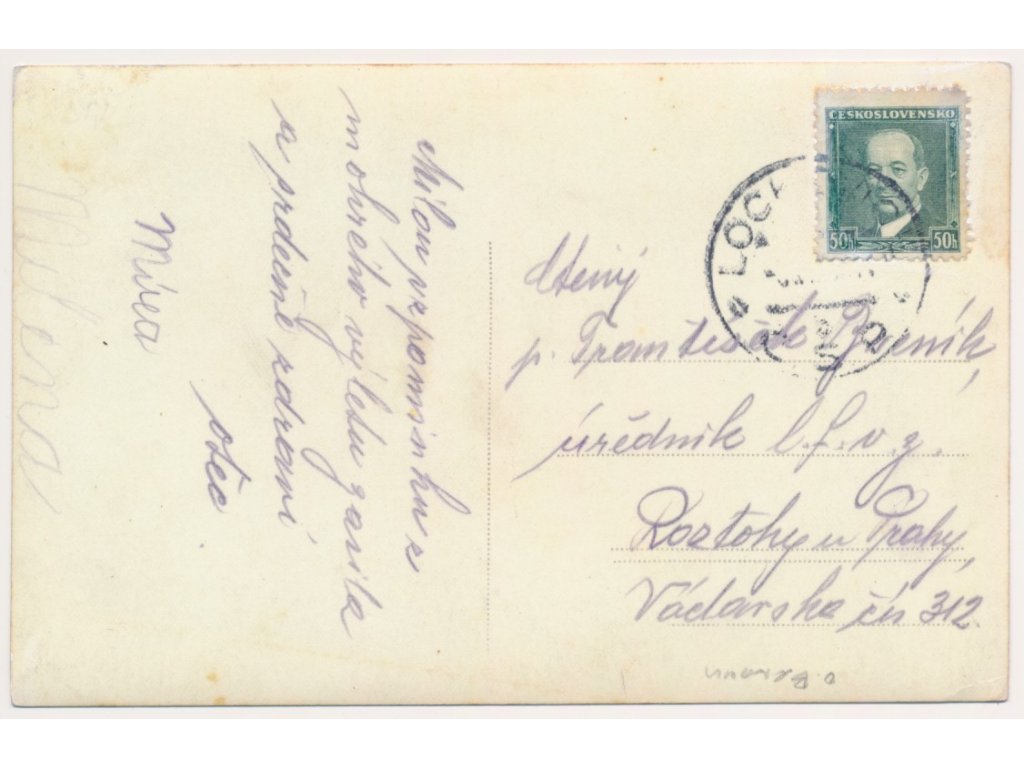 Milou vzpomínku z
mokrého výletu zasílá
a srdečně zdraví
otec
Mirea
Milena
ČESKOSLOVENSKO
50h 50h
LOCH
Ctený
p. František
úředník
Roztoky u Prahy,
Václavska čís 312.
o. Beroun